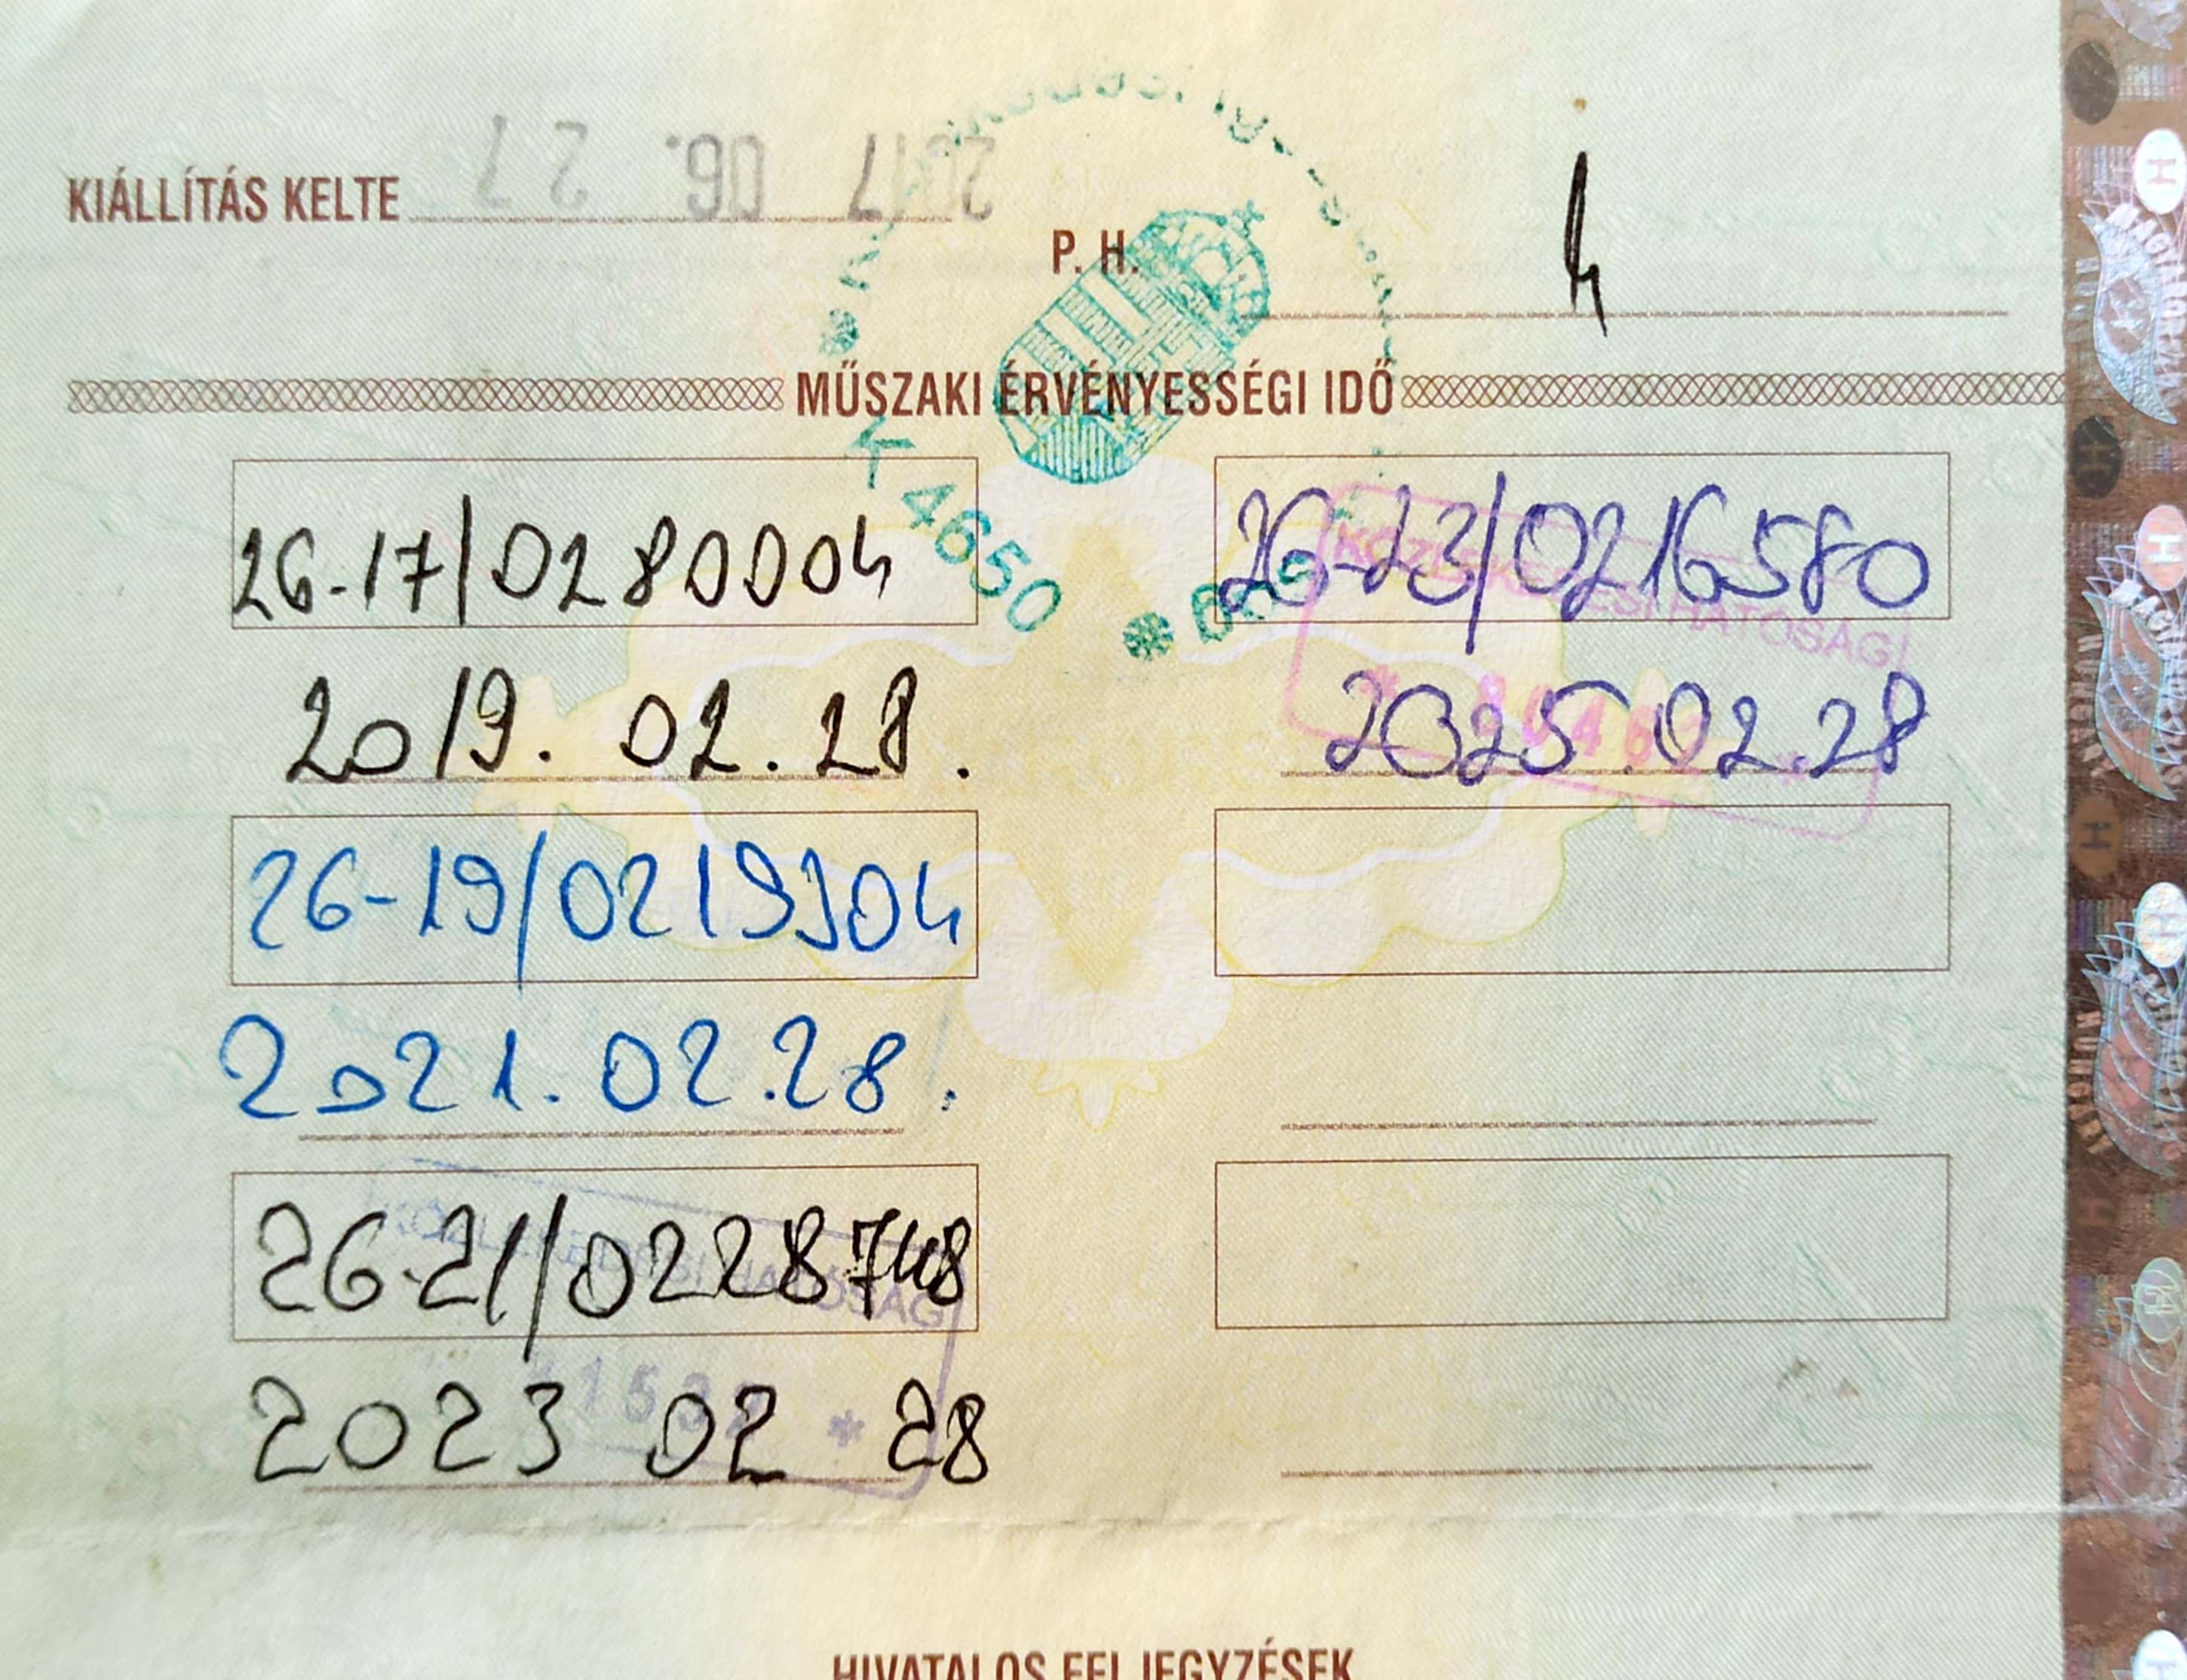 KIÁLLÍTÁS KELTE 2017 06. 27
P. H.
MŰSZAKI ÉRVÉNYESSÉGI IDŐ
K 4650
26-17/0280004
2019. 02. 28.
26-19/0219304
2021. 02. 28.
26-21/0228748
2023 02 28
26-23/0216580
2025.02.28
HATÓSÁGI
HIVATALOS FELJEGYZÉSEK